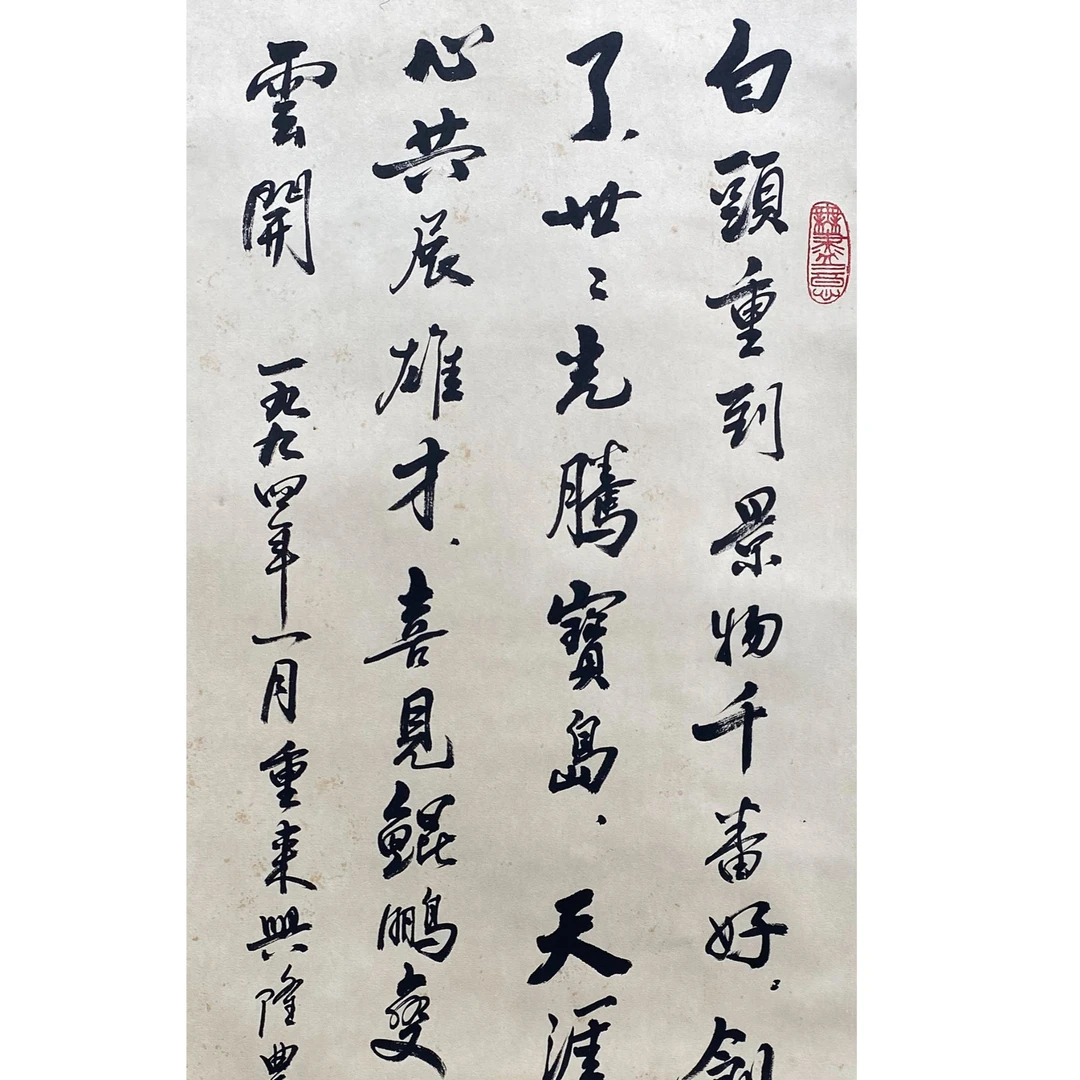 白頭重到景物千番好、
了、世〻光騰寶島、天涯
心共展雄才、喜見鯤鵬變
雲開 一九九四年一月重來興隆